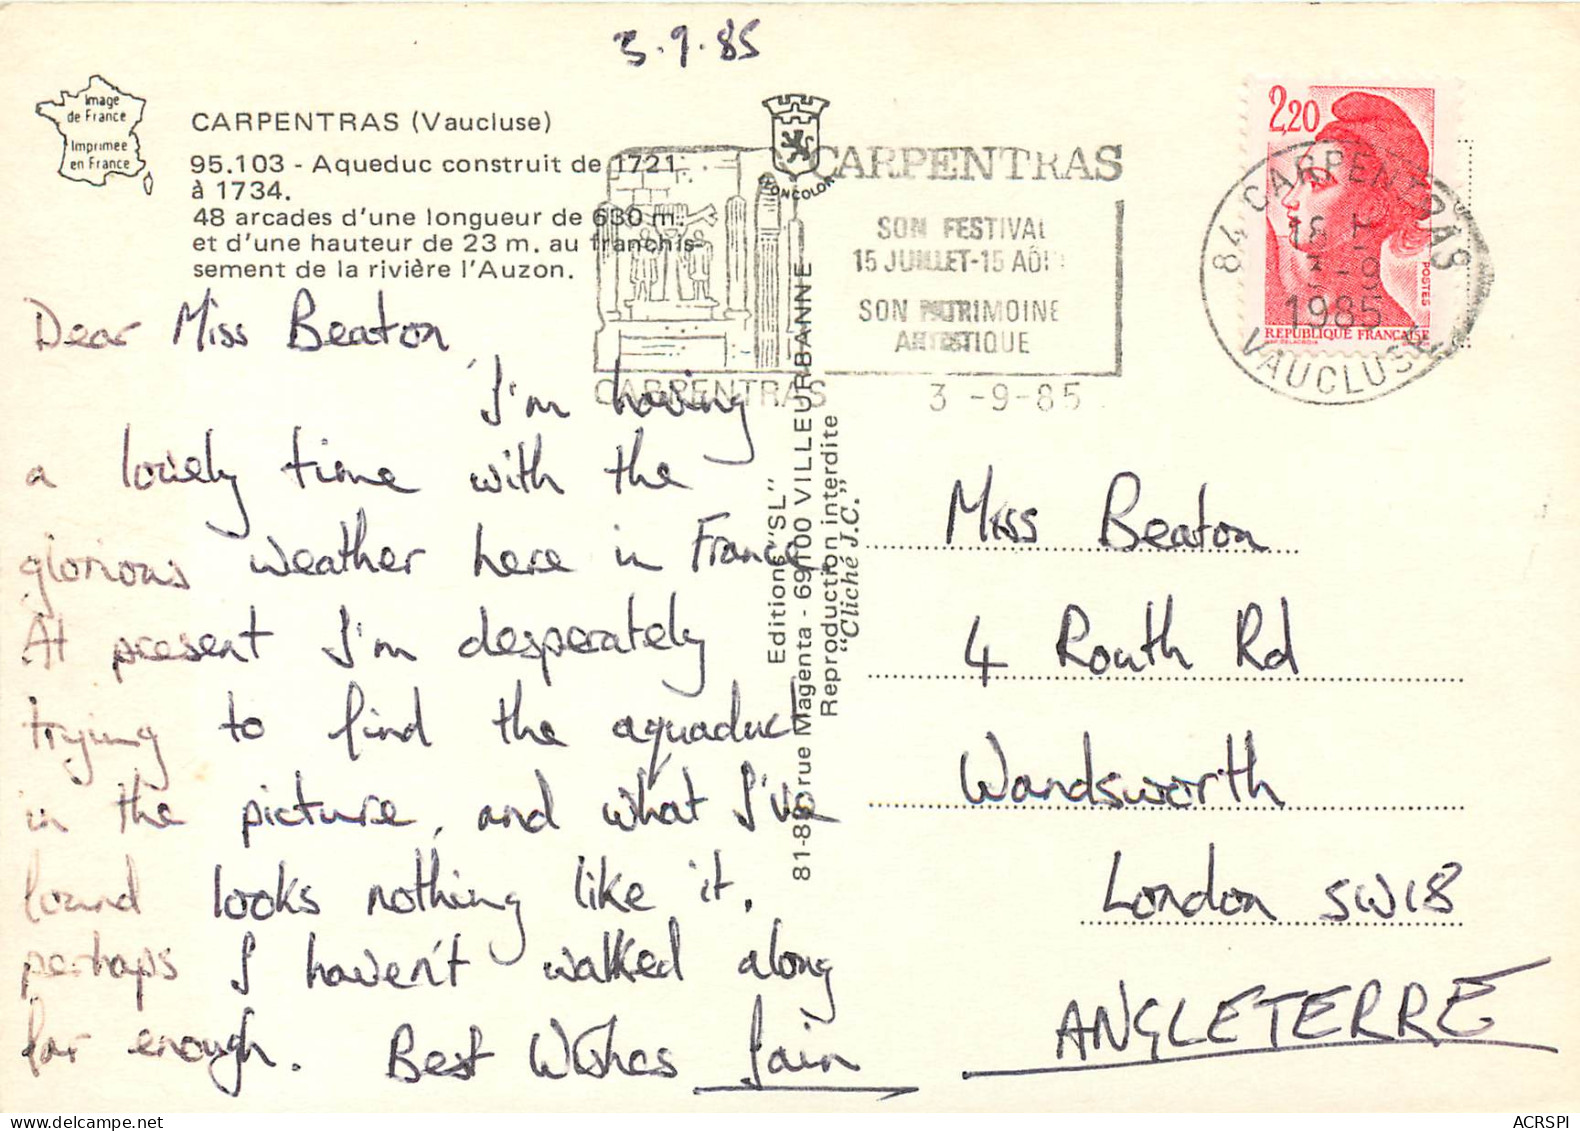 3.9.85
Image
de France
Imprimée
en France
CARPENTRAS (Vaucluse)
95.103 - Aqueduc construit de 1721
à 1734.
48 arcades d'une longueur de 630 m.
et d'une hauteur de 23 m. au franchis-
sement de la rivière l'Auzon.
Dear Miss Beaton,
I'm having
a lovely time with the
glorious weather here in France.
At present I'm desperately
trying to find the aquaduct
in the picture, and what I've
found looks nothing like it.
perhaps I haven't walked along
far enough. Best Wishes Iain
CARPENTRAS
SON FESTIVAL
15 JUILLET-15 AOÛT
SON PATRIMOINE
ARTISTIQUE
CARPENTRAS
3 -9-85
Editions "SL"
81-83, rue Magenta - 69100 VILLEURBANNE
Reproduction interdite
"Cliché J.C."
2,20
POSTES
REPUBLIQUE FRANÇAISE
84 CARPENTRAS
1985
VAUCLUSE
Miss Beaton
4 Routh Rd
Wandsworth
London SW18
ANGLETERRE
ACRSPI